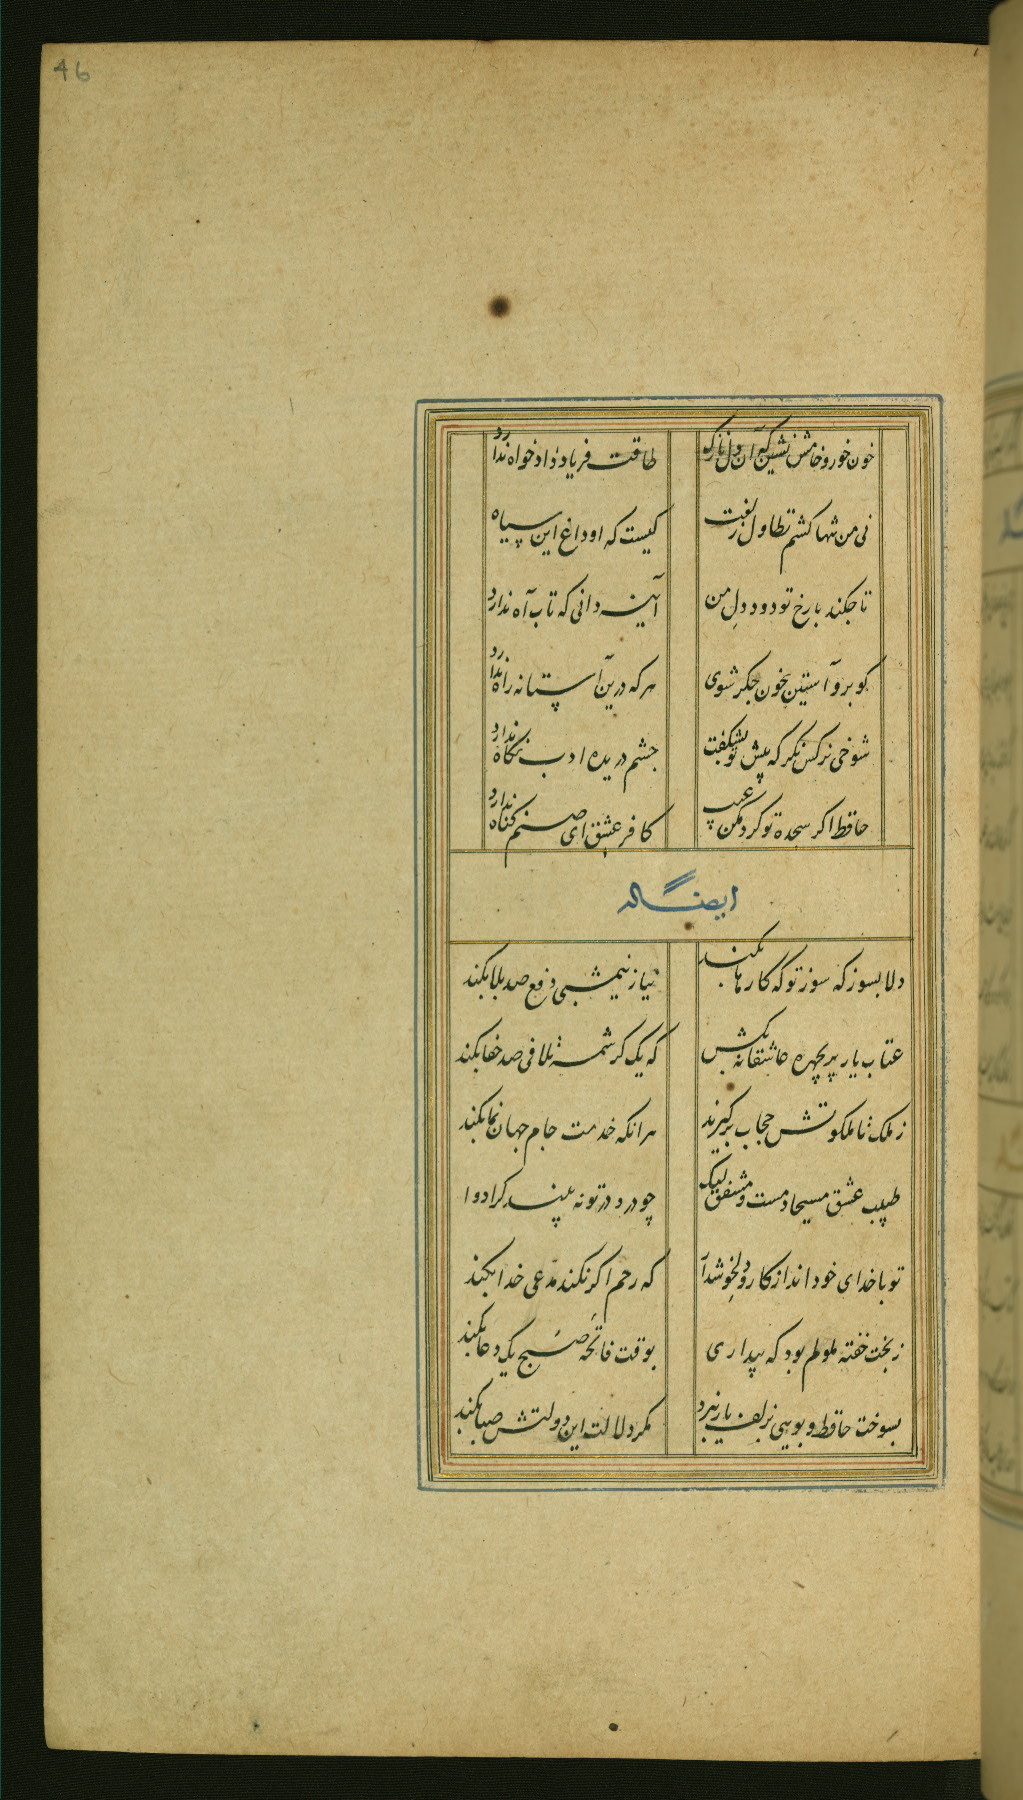 46
خون خور و خامش نشین که آن دل نازک طاقت فریاد داد خواه ندارد
نی من تنها کشم تطاول زلفت کیست که او داغ این سیاه
تا چکند با رخ تو دود دل من آینه دانی که تاب آه ندارد
کو برو آستین بخون جکر شوی هر که درین آستانه راه ندارد
شوخی نرکس نکر که پیش تو بشکفت جشم دریده ادب نکاه ندارد
حافظ اکر سجده تو کرد مکن عیب کافر عشق ای صنم کناه ندارد
ایضا له
دلا بسوز که سوز تو که کارها بکند نیاز نیمشبی دفع صد بلا بکند
عتاب یار پریچهره عاشقانه بکش که یک کرشمه تلافی صد جفا بکند
ز ملک تا ملکوتش حجاب برکیرند هرانکه خدمت جام جهان نما بکند
طبیب عشق مسیحا دمست و مشفق لیک چو درد در تو نه بیند کرا دوا
تو با خدای خود انداز کار و دلخوش دار که رحم اکر نکند مدعی خدا بکند
ز بخت خفته ملولم بود که بیداری بوقت فاتحه صبح یک دعا بکند
بسوخت حافظ و بویی بزلف یار نبرد مکر دلالت این دولتش صبا بکند